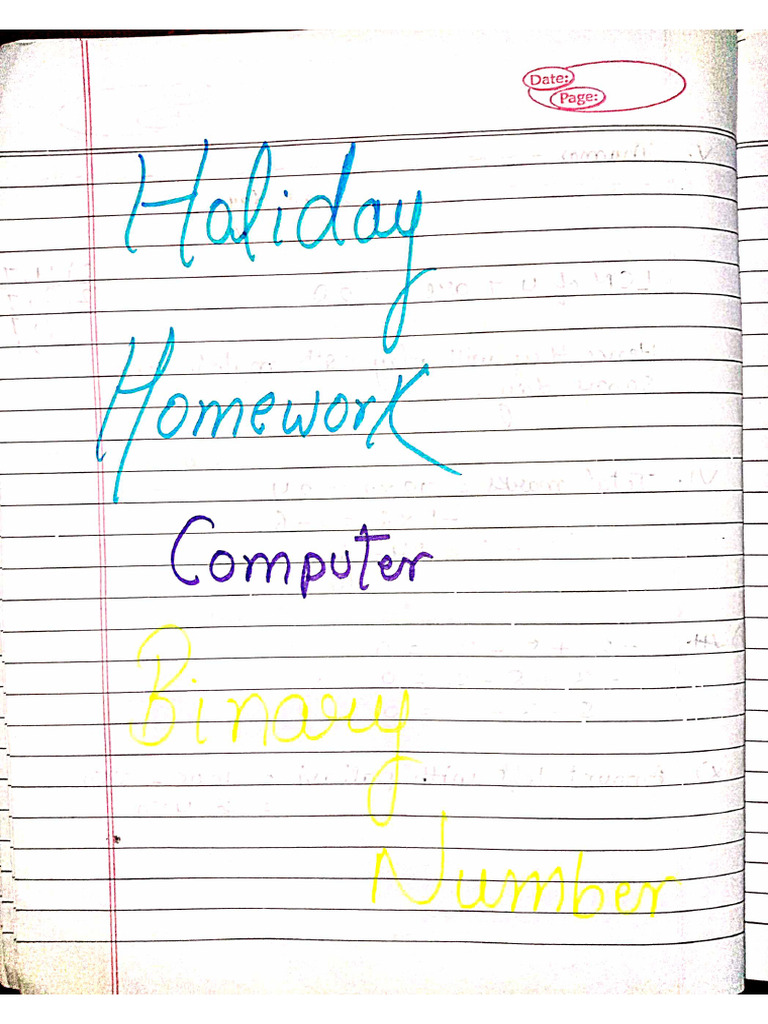 Date:
Page:
Haliday
Homework
Computer
Binary
Number